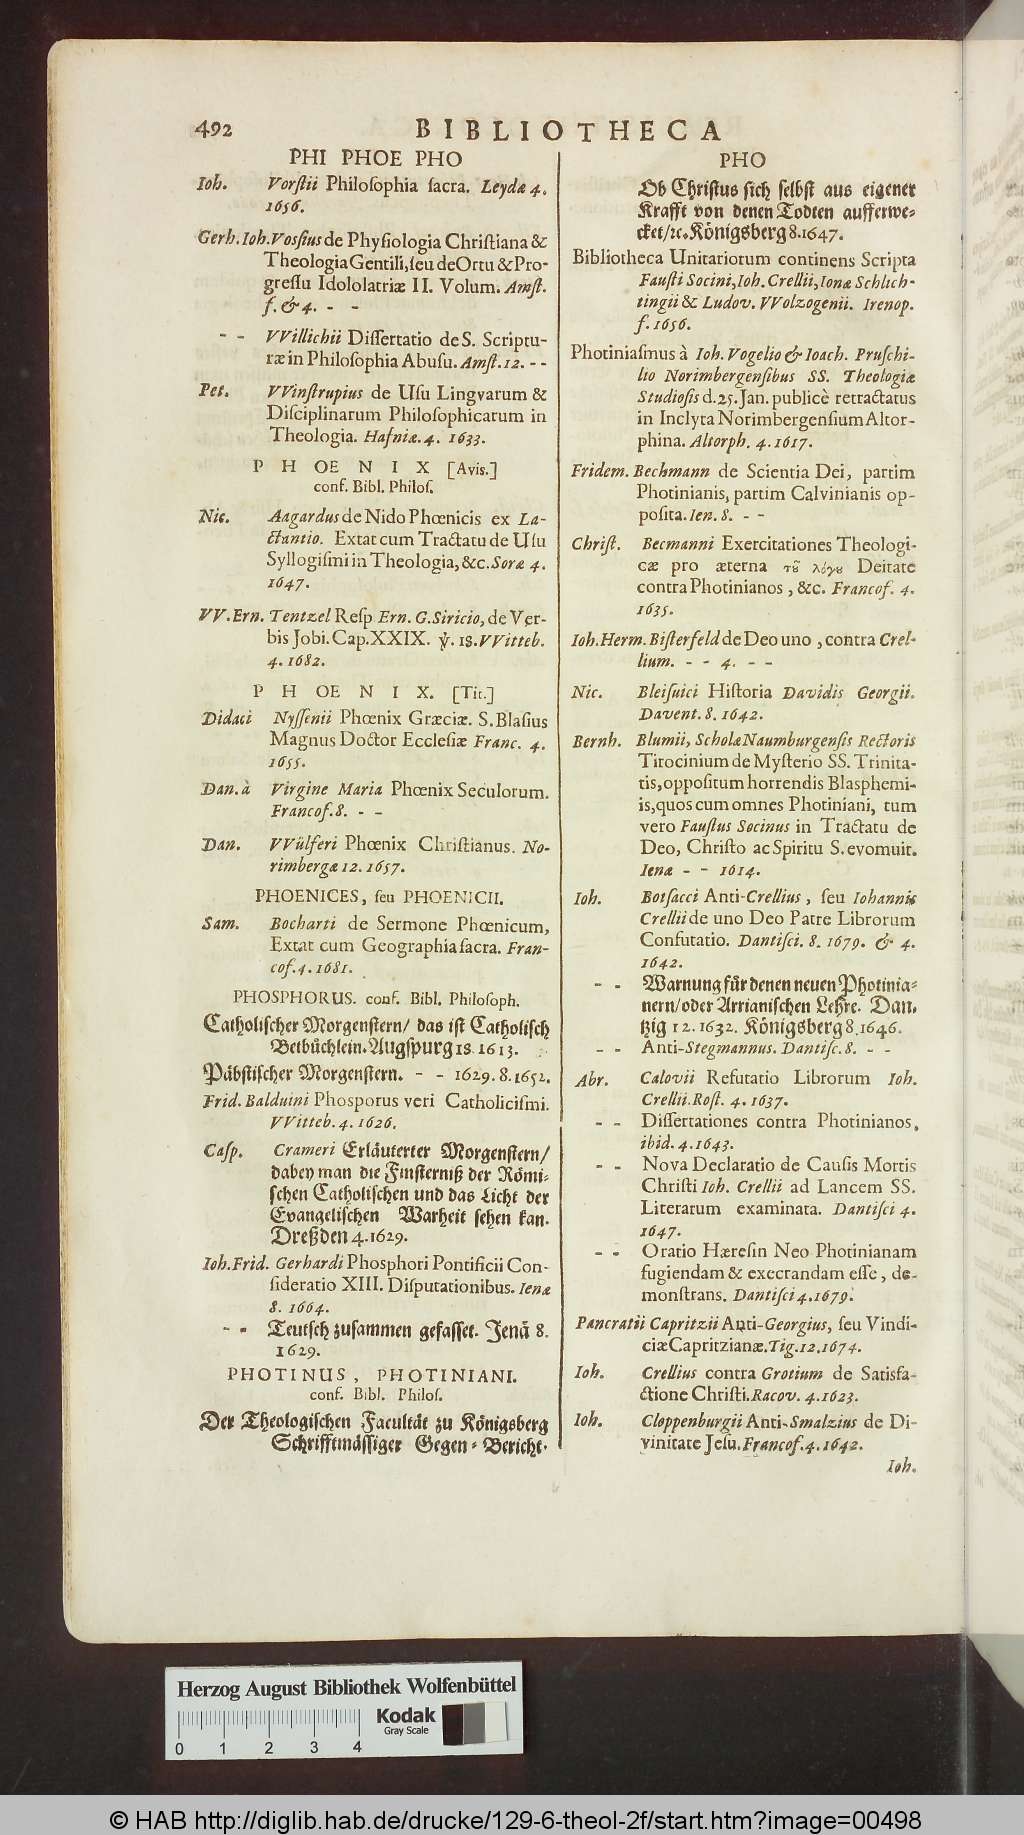 492
BIBLIOTHECA
PHI PHOE PHO
Ioh. Vorſtii Philoſophia ſacra. Leydæ 4.
1656.
Gerh. Ioh. Voſsius de Phyſiologia Chriſtiana &
Theologia Gentili, ſeu de Ortu & Pro-
greſſu Idololatriæ II. Volum. Amſt.
f. & 4. - -
- - VVillichii Diſſertatio de S. Scriptu-
ræ in Philoſophia Abuſu. Amſt. 12. - -
Pet. VVinſtrupius de Uſu Lingvarum &
Diſciplinarum Philoſophicarum in
Theologia. Hafniæ. 4. 1633.
PHOENIX [Avis.]
conf. Bibl. Philoſ.
Nic. Aagardus de Nido Phœnicis ex La-
ctantio. Extat cum Tractatu de Uſu
Syllogiſmi in Theologia, &c. Soræ 4.
1647.
VV. Ern. Tentzel Reſp Ern. G. Siricio, de Ver-
bis Jobi. Cap. XXIX. ℣. 18. VVitteb.
4. 1682.
PHOENIX. [Tit.]
Didaci Nyſſenii Phœnix Græciæ. S. Blaſius
Magnus Doctor Eccleſiæ Franc. 4.
1655.
Dan. à Virgine Maria Phœnix Seculorum.
Francof. 8. - -
Dan. VVülferi Phœnix Chriſtianus. No-
rimbergæ 12. 1657.
PHOENICES, ſeu PHOENICII.
Sam. Bocharti de Sermone Phœnicum,
Extat cum Geographia ſacra. Fran-
cof. 4. 1681.
PHOSPHORUS. conf. Bibl. Philoſoph.
Catholiſcher Morgenſtern/ das iſt Catholiſch
Betbüchlein. Augſpurg 18. 1613.
Päbſtiſcher Morgenſtern. - - 1629. 8. 1652.
Frid. Balduini Phosporus veri Catholiciſmi.
VVitteb. 4. 1626.
Caſp. Crameri Erläuterter Morgenſtern/
dabey man die Finſterniß der Römi-
ſchen Catholiſchen und das Licht der
Evangeliſchen Warheit ſehen kan.
Dreßden 4. 1629.
Ioh. Frid. Gerhardi Phosphori Pontificii Con-
ſideratio XIII. Diſputationibus. Ienæ
8. 1664.
- - Teutſch zuſammen gefaſſet. Jenä 8.
1629.
PHOTINUS, PHOTINIANI.
conf. Bibl. Philoſ.
Der Theologiſchen Facultät zu Königsberg
Schrifftmäſſiger Gegen-Bericht.
PHO
Ob Chriſtus ſich ſelbſt aus eigener
Krafft von denen Todten aufferwe-
cket/ꝛc. Königsberg 8. 1647.
Bibliotheca Unitariorum continens Scripta
Fauſti Socini, Ioh. Crellii, Ionæ Schlich-
tingii & Ludov. VVolzogenii. Irenop.
f. 1656.
Photiniaſmus à Ioh. Vogelio & Ioach. Pruſchi-
lio Norimbergenſibus SS. Theologiæ
Studioſis d. 25. Jan. publicè retractatus
in Inclyta Norimbergenſium Altor-
phina. Altorph. 4. 1617.
Fridem. Bechmann de Scientia Dei, partim
Photinianis, partim Calvinianis op-
poſita. Ien. 8. - -
Chriſt. Becmanni Exercitationes Theologi-
cæ pro æterna τȣ͂ λόγȣ Deitate
contra Photinianos, &c. Francof. 4.
1635.
Ioh. Herm. Biſterfeld de Deo uno, contra Crel-
lium. - - 4. - -
Nic. Bleiſuici Hiſtoria Davidis Georgii.
Davent. 8. 1642.
Bernh. Blumii, Scholæ Naumburgenſis Rectoris
Tirocinium de Myſterio SS. Trinita-
tis, oppoſitum horrendis Blasphemi-
is, quos cum omnes Photiniani, tum
vero Fauſtus Socinus in Tractatu de
Deo, Chriſto ac Spiritu S. evomuit.
Ienæ - - 1614.
Ioh. Botſacci Anti-Crellius, ſeu Iohannis
Crellii de uno Deo Patre Librorum
Confutatio. Dantiſci. 8. 1679. & 4.
1642.
- - Warnung für denen neuen Photinia-
nern/ oder Arrianiſchen Lehre. Dan-
tzig 12. 1632. Königsberg 8. 1646.
- - Anti-Stegmannus. Dantiſc. 8. - -
Abr. Calovii Refutatio Librorum Ioh.
Crellii. Roſt. 4. 1637.
- - Diſſertationes contra Photinianos,
ibid. 4. 1643.
- - Nova Declaratio de Cauſis Mortis
Chriſti Ioh. Crellii ad Lancem SS.
Literarum examinata. Dantiſci 4.
1647.
- - Oratio Hæreſin Neo Photinianam
fugiendam & execrandam eſſe, de-
monſtrans. Dantiſci 4. 1679.
Pancratii Capritzii Anti-Georgius, ſeu Vindi-
ciæ Capritzianæ. Tig. 12. 1674.
Ioh. Crellius contra Grotium de Satisfa-
ctione Chriſti. Racov. 4. 1623.
Ioh. Cloppenburgii Anti-Smalzius de Di-
vinitate Jeſu. Francof. 4. 1642.
Ioh.
Herzog August Bibliothek Wolfenbüttel
Kodak
Gray Scale
0 1 2 3 4
© HAB http://diglib.hab.de/drucke/129-6-theol-2f/start.htm?image=00498